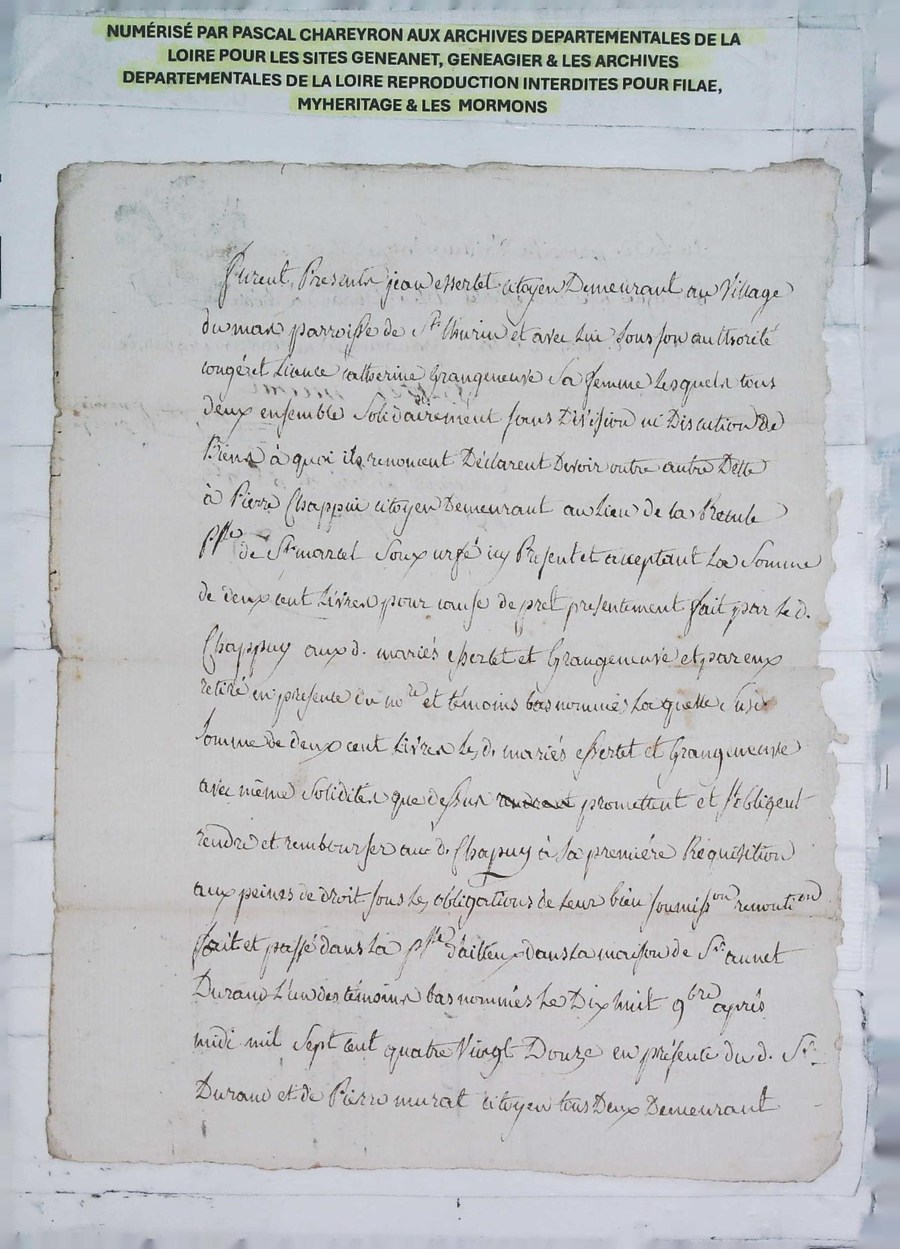 NUMÉRISÉ PAR PASCAL CHAREYRON AUX ARCHIVES DEPARTEMENTALES DE LA
LOIRE POUR LES SITES GENEANET, GENEAGIER & LES ARCHIVES
DEPARTEMENTALES DE LA LOIRE REPRODUCTION INTERDITES POUR FILAE,
MYHERITAGE & LES MORMONS
furent Presents jean essertet citoyen Demeurant au Village
du mas parroisse de St. thurin et avec Lui sous son authorité
congé et Licence catherine Grangeneuve Sa femme Lesquels tous
deux ensemble Solidairement sans Division ni Discution De
Biens à quoi ils renoncent Déclarent Devoir outre autre Dette
à Pierre Chappui citoyen Demeurant au Lieu de La
psse de St. marcel Soux urfé icy Present et acceptant La Somme
de deux cent Livres pour cause de prêt presentement fait par Le d.
Chappuy aux d. mariés essertet et Grangeneuve et par eux
retiré en presence du nore et témoins bas nommés La quelle Susd.
somme de deux cent Livres Les d. mariés essertet et Grangeneuve
avec même Solidités que dessus promettent et s'obligent
rendre et rembourser au d. Chapuy à Sa première Requisition
aux peines de droit sous Les obligations de Leur bien soumisson renontion
fait et passé dans La psse d'ailleux dans La maison de Sr. annet
Durand L'un des témoins bas nommés Le Dix huit 9bre après
midi mil Sept cent quatre Vingt Douze en présence du d. Sr.
Durand et de Pierre murat citoyen tous Deux Demeurant